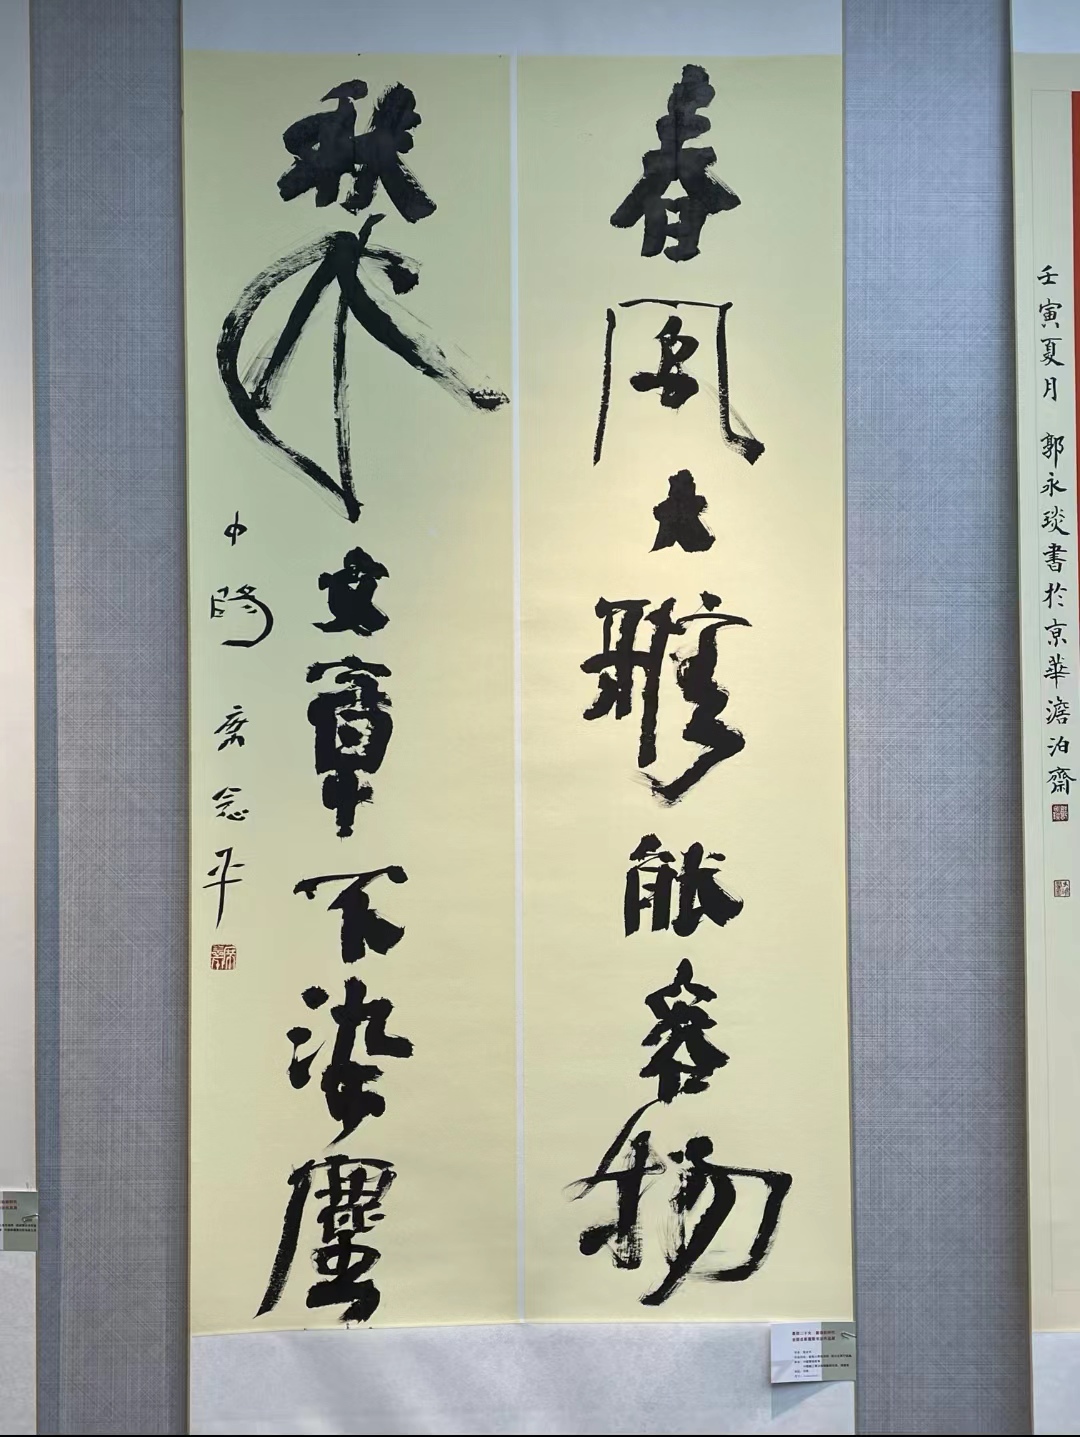 春风大雅能容物
秋水文章不染塵
席念平
壬寅夏月 郭永琰書於京華澹泊齋